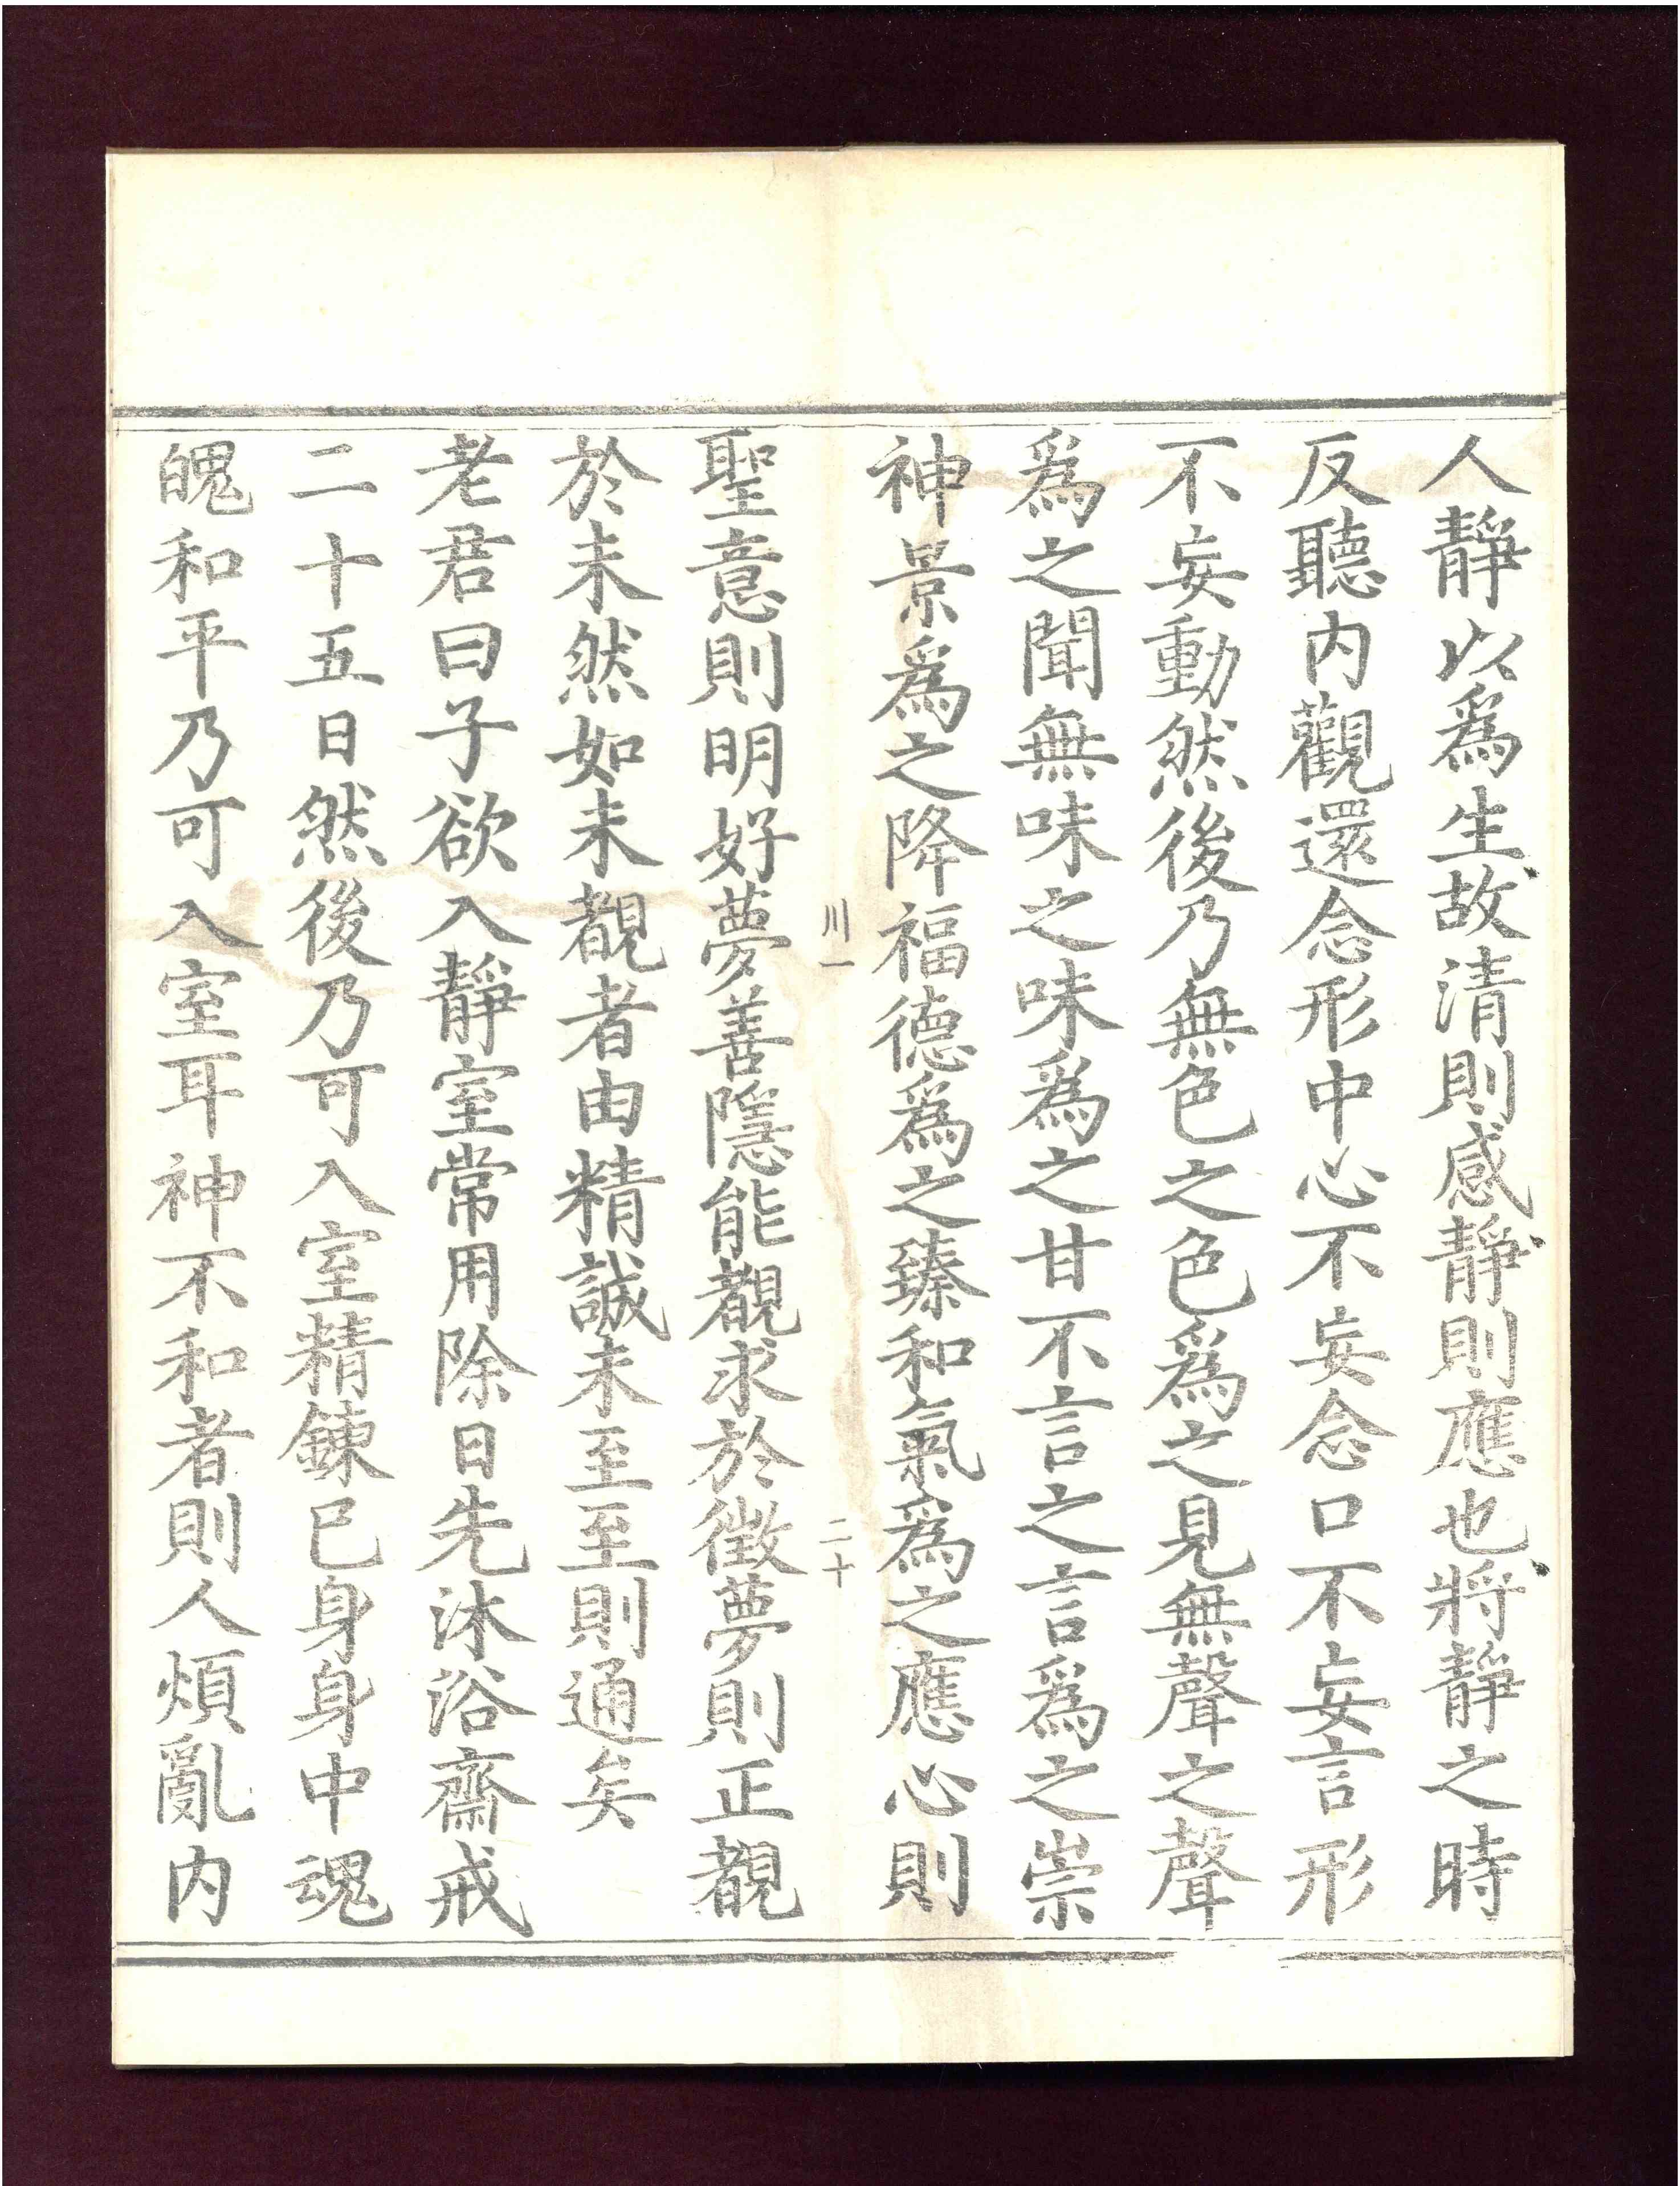 人靜以爲生故清則感靜則應也將靜之時
反聽内觀還念形中心不妄念口不妄言形
不妄動然後乃無色之色爲之見無聲之聲
爲之聞無味之味爲之甘不言之言爲之崇
神景爲之降福德爲之臻和氣爲之應心則
川一 二十
聖意則明好夢善隱能覩求於徵夢則正覩
於未然如未覩者由精誠未至至則通矣
老君曰子欲入靜室常用除日先沐浴齋戒
二十五日然後乃可入室精鍊巳身身中魂
魄和平乃可入室耳神不和者則人煩亂内